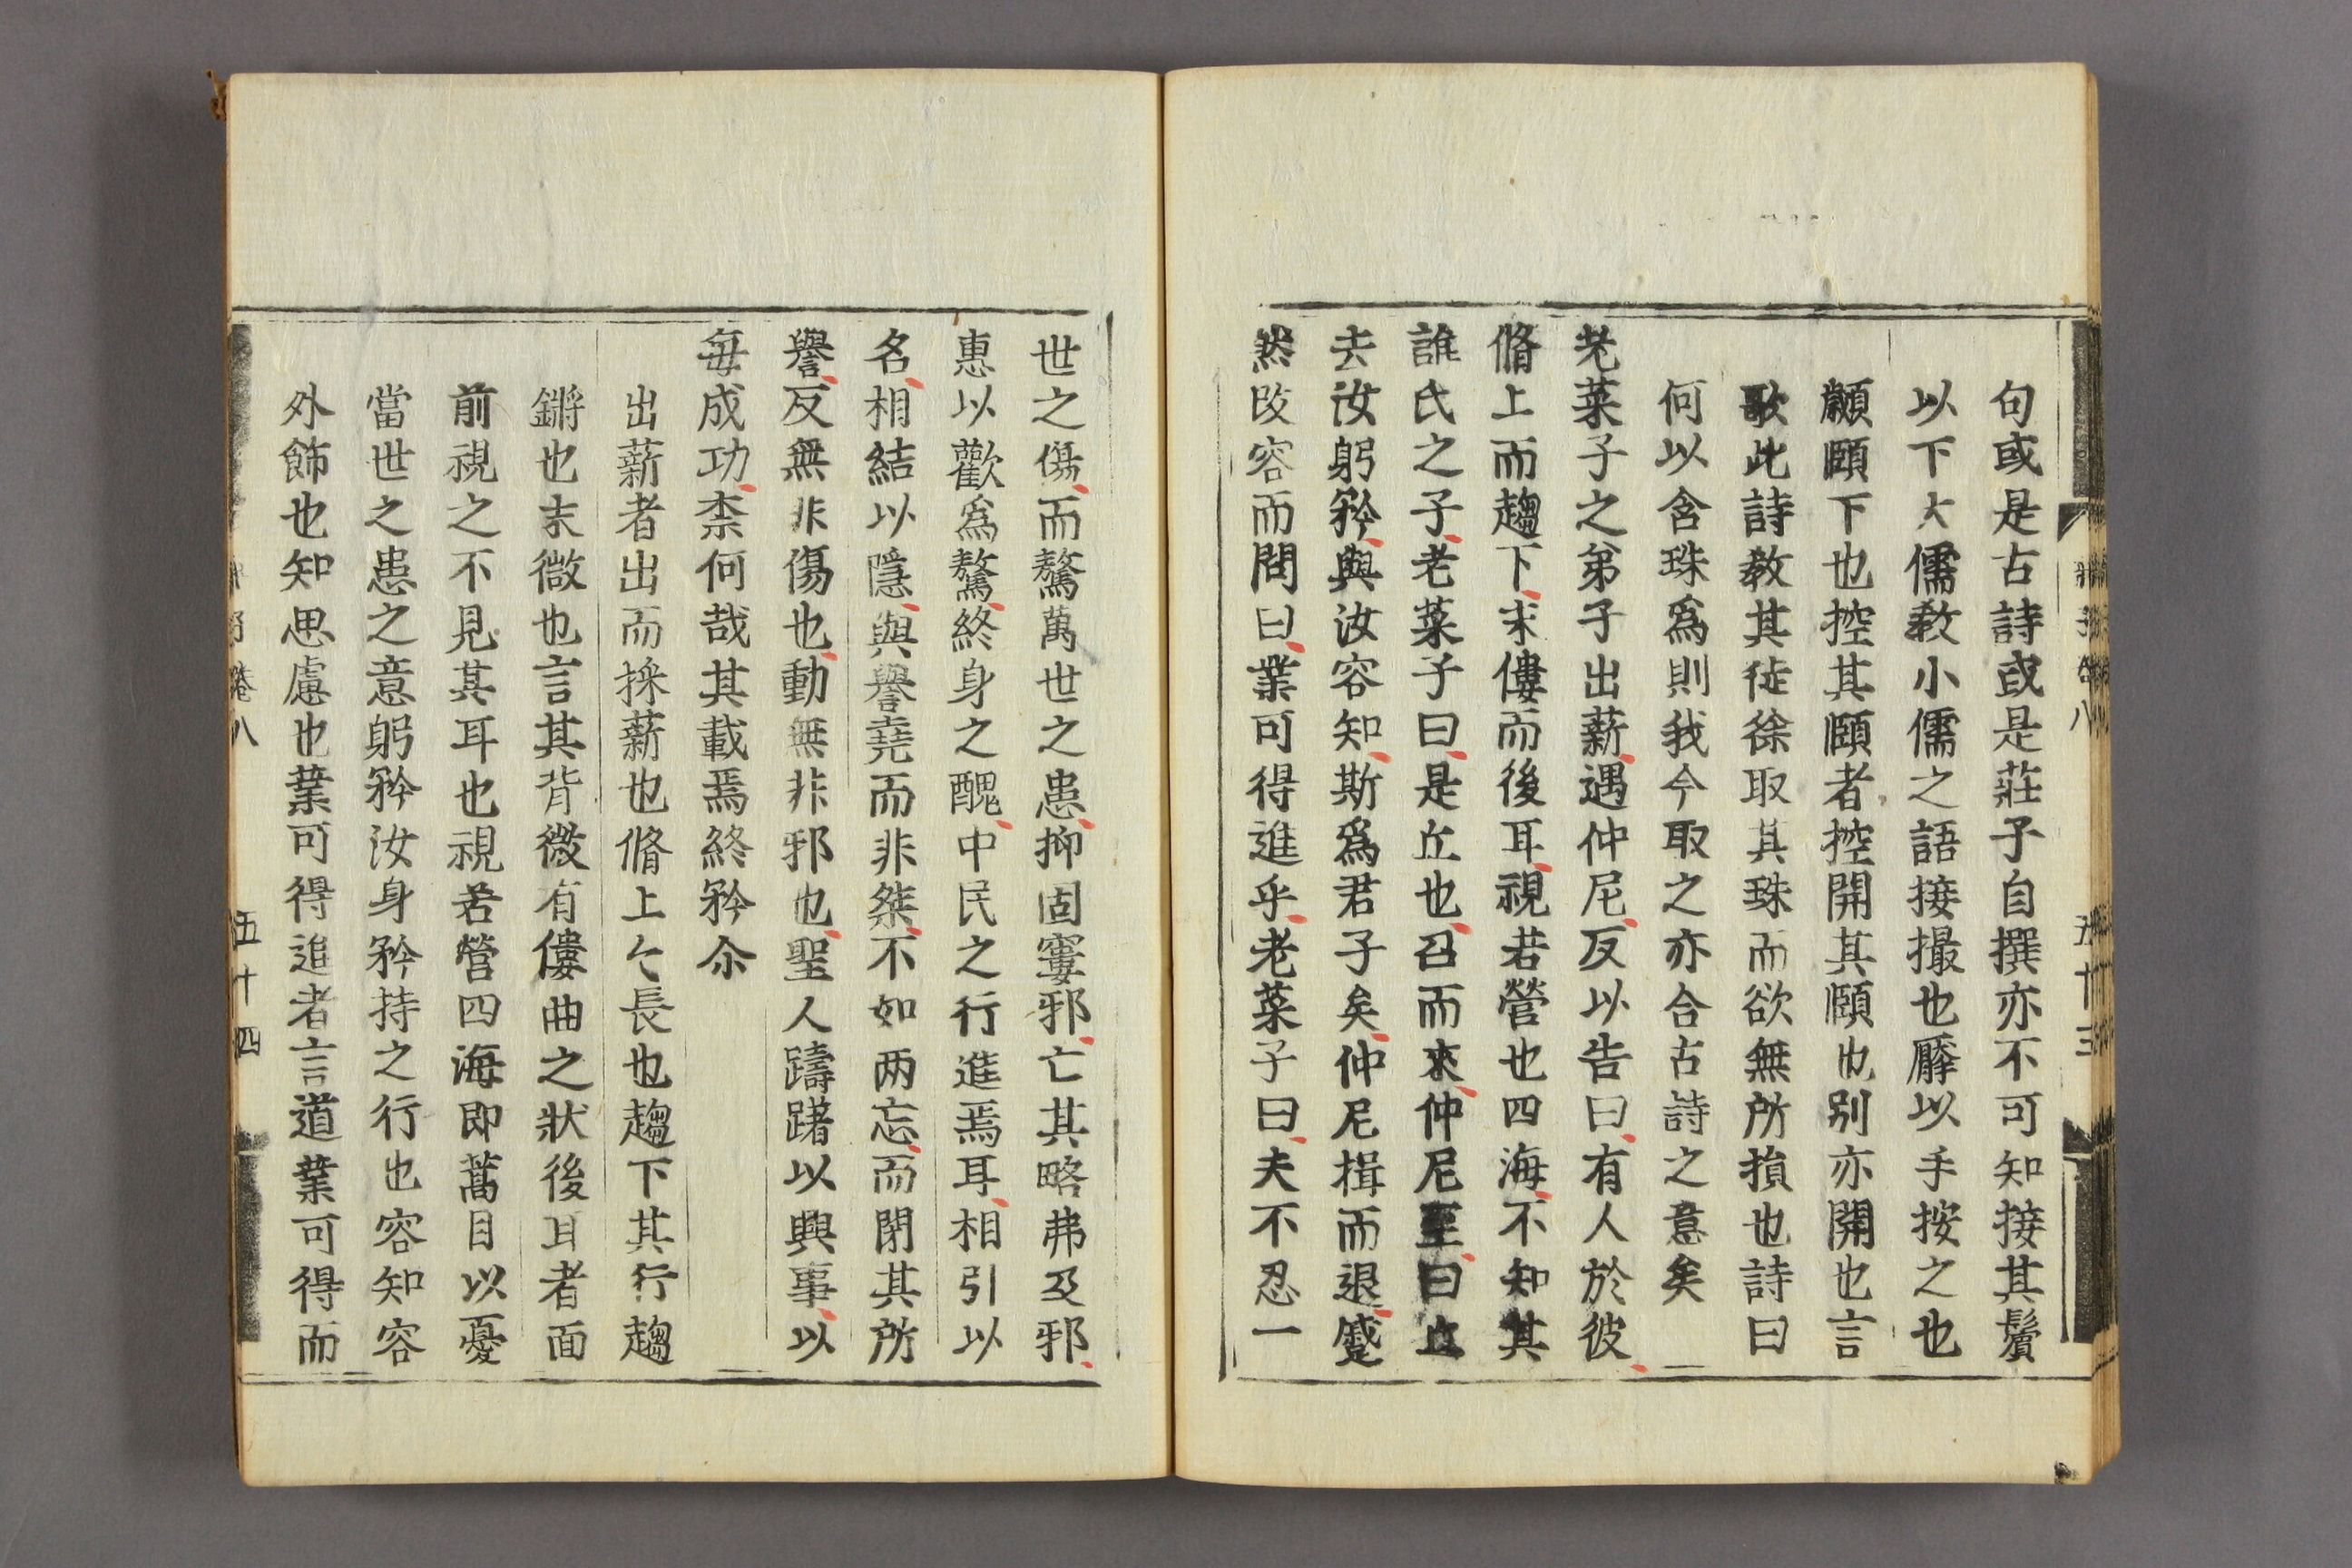 句或是古詩或是莊子自撰亦不可知接其鬢
以下大儒教小儒之語接撮也擪以手按之也
顪頤下也控其頤者控開其頤也別亦開也言
歌此詩教其徒徐取其珠而欲無所損也詩曰
何以含珠爲則我今取之亦合古詩之意矣
老菜子之弟子出薪遇仲尼反以告曰有人於彼
脩上而趨下末僂而後耳視若營四海不知其
誰氏之子老菜子曰是丘也召而來仲尼至曰丘
去汝躬矜與汝容知斯爲君子矣仲尼揖而退蹙
然改容而問曰業可得進乎老菜子曰夫不忍一
五十三
世之傷而驁萬世之患抑固窶邪亡其略弗及邪
惠以歡爲驁終身之醜中民之行進焉耳相引以
名相結以隱與譽堯而非桀不如两忘而閉其所
譽反無非傷也動無非邪也聖人躊躇以興事以
每成功柰何哉其載焉終矜尒
出薪者出而採薪也脩上上長也趨下其行趨
鏘也末微也言其背微有僂曲之狀後耳者面
前視之不見其耳也視若營四海即蒿目以憂
當世之患之意躬矜汝身矜持之行也容知容
外飾也知思慮也業可得進者言道業可得而
卷八
五十四